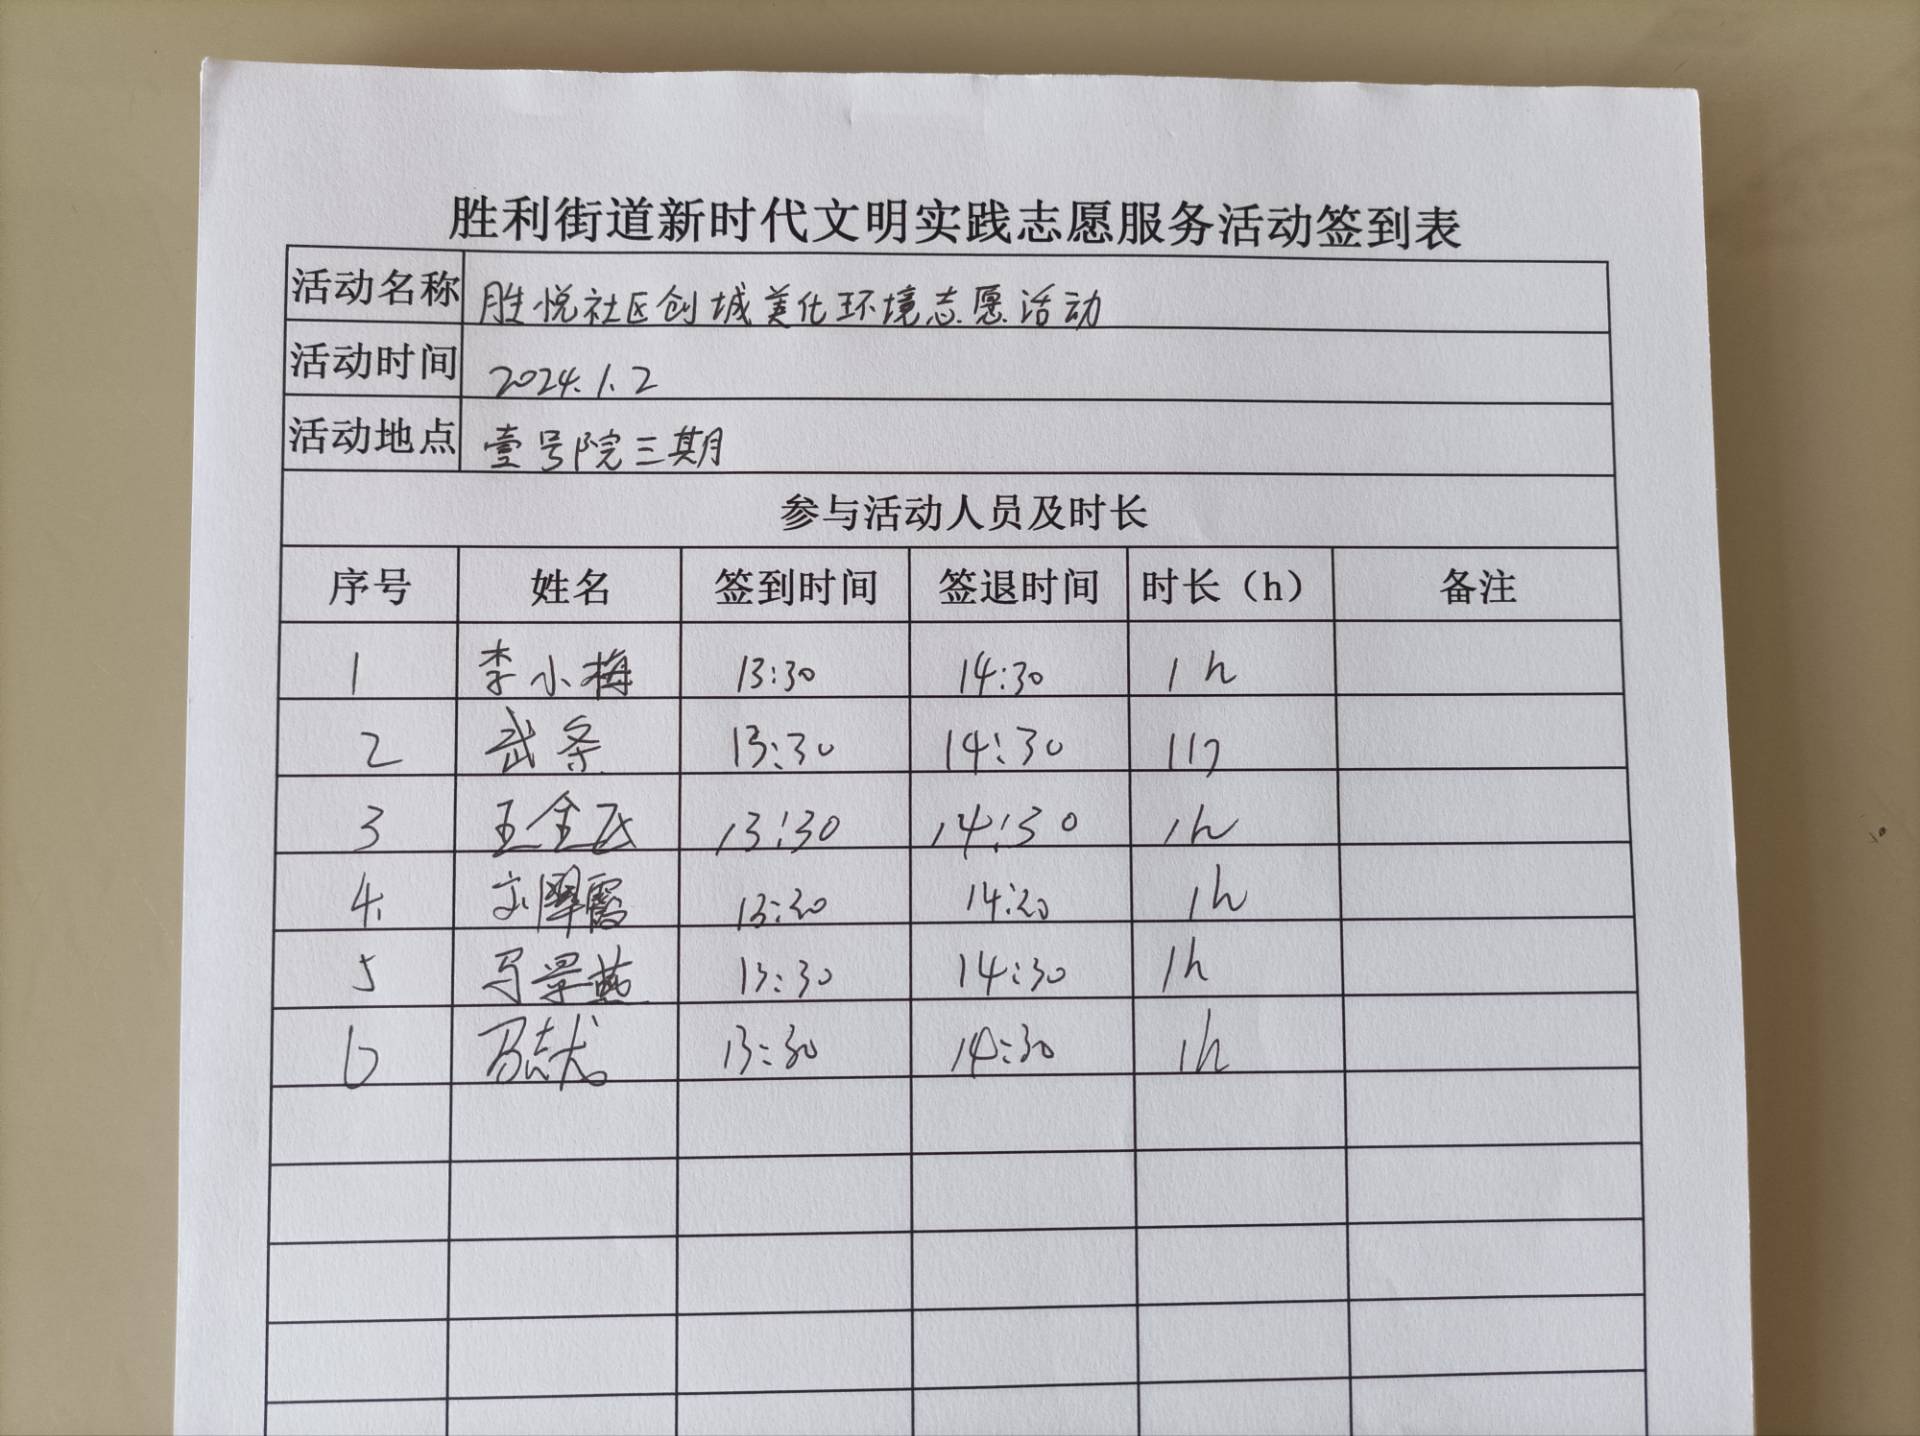 胜利街道新时代文明实践志愿服务活动签到表
活动名称 胜悦社区创城美化环境志愿活动
活动时间 2024.1.2
活动地点 壹号院三期
参与活动人员及时长
序号 姓名 签到时间 签退时间 时长（h） 备注
1 李小梅 13:30 14:30 1h
2 武条 13:30 14:30 1h
3 王全民 13:30 14:30 1h
4 13:30 14:30 1h
5 马景燕 13:30 14:30 1h
6 13:30 14:30 1h